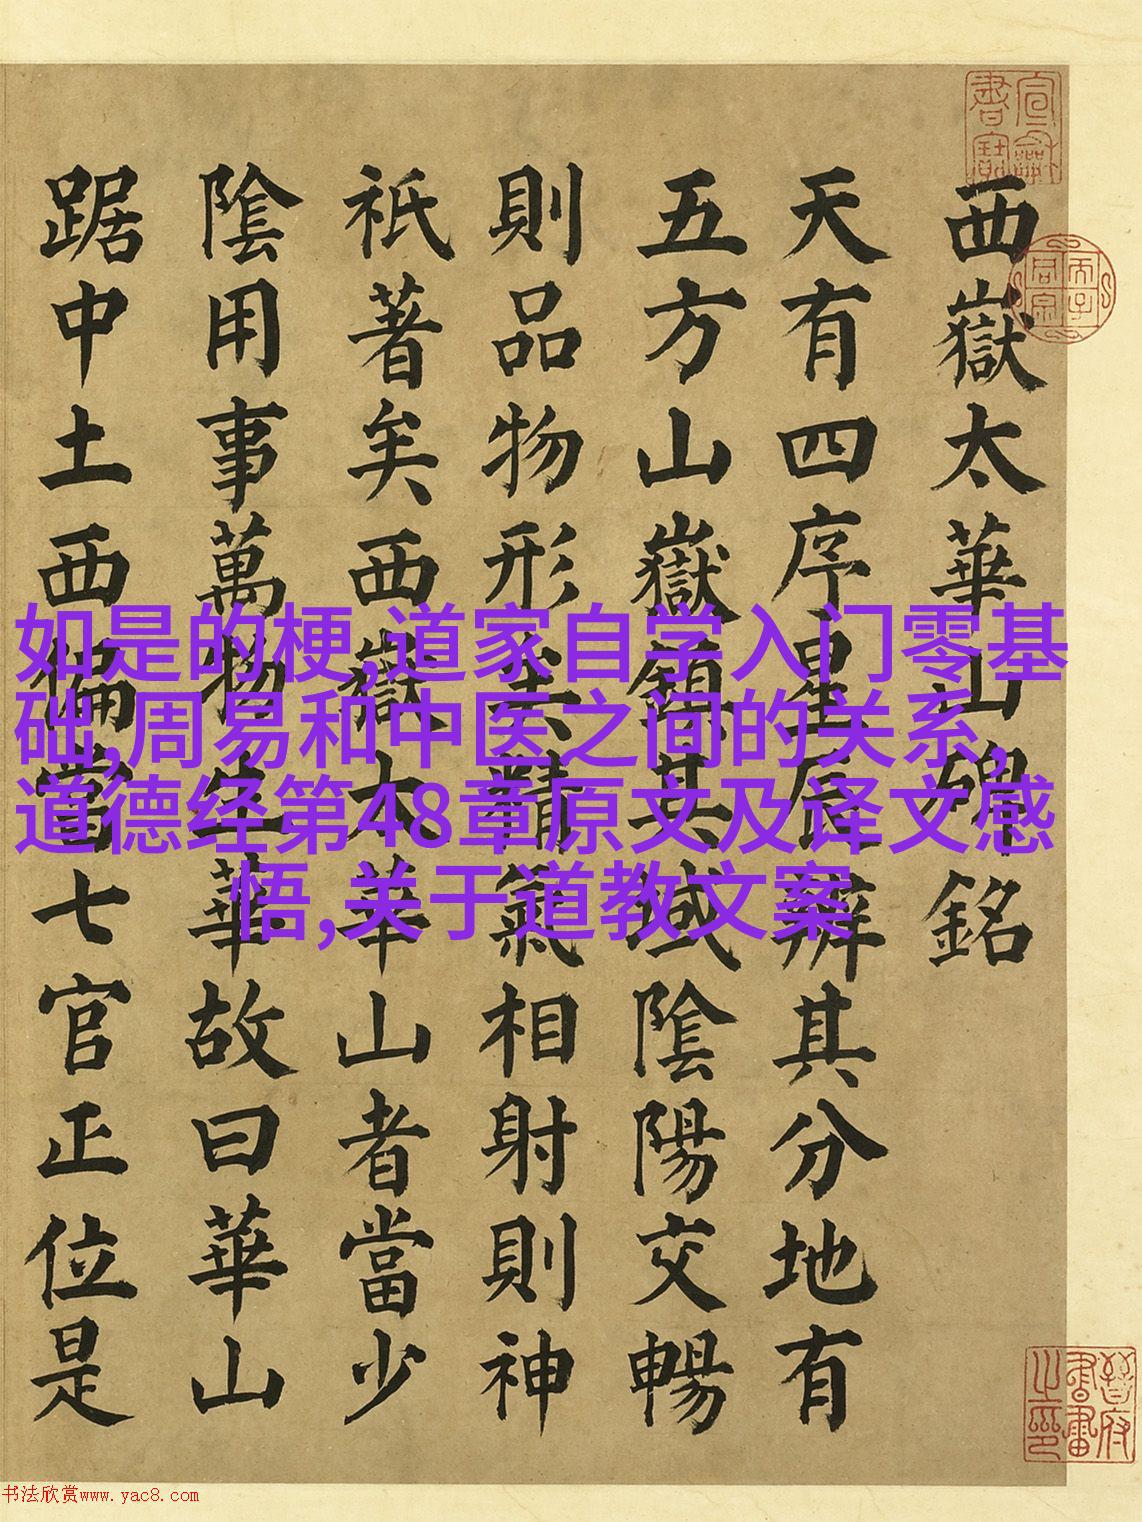 西嶽太華山碑銘
天有四序星辰辨其分地有
五方山嶽鎮其域陰陽交暢
則品物形焉精氣相射則神
祇著矣西嶽太華山者當少
陰用事萬物生華故曰華山
踞中土西偏當七宫正位是
如是的梗,道家自学入门零基
础,周易和中医之间的关系,
道德经第48章原文及译文感
悟,关于道教文案
书法欣赏www.yac8.com